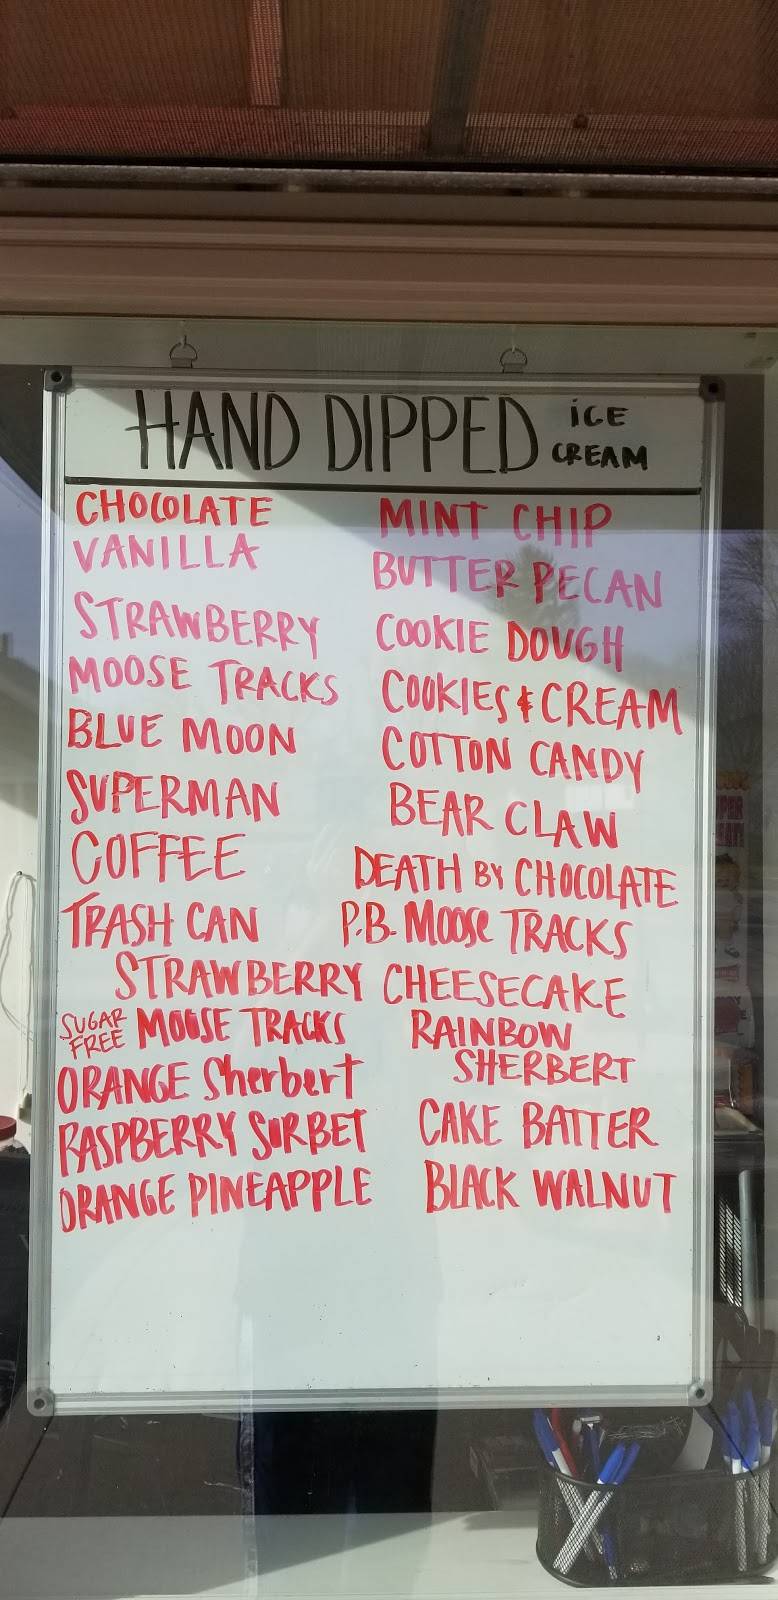 HAND DIPPED ICE CREAM
CHOCOLATE
VANILLA
STRAWBERRY
MOOSE TRACKS
BLUE MOON
SUPERMAN
COFFEE
TRASH CAN
MINT CHIP
BUTTER PECAN
COOKIE DOUGH
COOKIES & CREAM
COTTON CANDY
BEAR CLAW
DEATH BY CHOCOLATE
P.B. MOOSE TRACKS
STRAWBERRY CHEESECAKE
SUGAR FREE MOOSE TRACKS
ORANGE Sherbert
RASPBERRY SORBET
ORANGE PINEAPPLE
RAINBOW
SHERBERT
CAKE BATTER
BLACK WALNUT